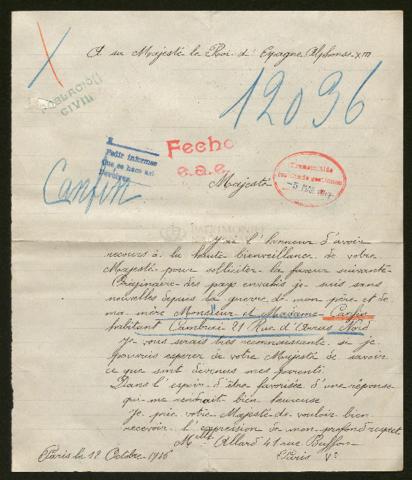 A sa Majesté le Roi d'Espagne Alphonse XIII
12096
POBLACIÓN
CIVIL
Pedir informes
Que se haga así
Devolver
Fecho
e.a.e.
Canfin
Majesté
J'ai l'honneur d'avoir
recours à la haute bienveillance de votre
Majesté pour solliciter la faveur suivante
des pays envahis je suis sans
nouvelles depuis la guerre de mon père et de
ma mère Monsieur et Madame Canfin
habitant Cambrai 21 Rue d'Arras Nord
Je vous serais bien reconnaissante si je
pouvais espérer de votre Majesté de savoir
ce que sont devenus mes parents.
Dans l'espoir d'être favorisée d'une réponse
qui me rendrait bien heureuse
Je prie votre Majesté de vouloir bien
recevoir l'expression de mon profond respect
Allard 41 rue Buffon
Paris le 12 Octobre 1916
Paris Ve